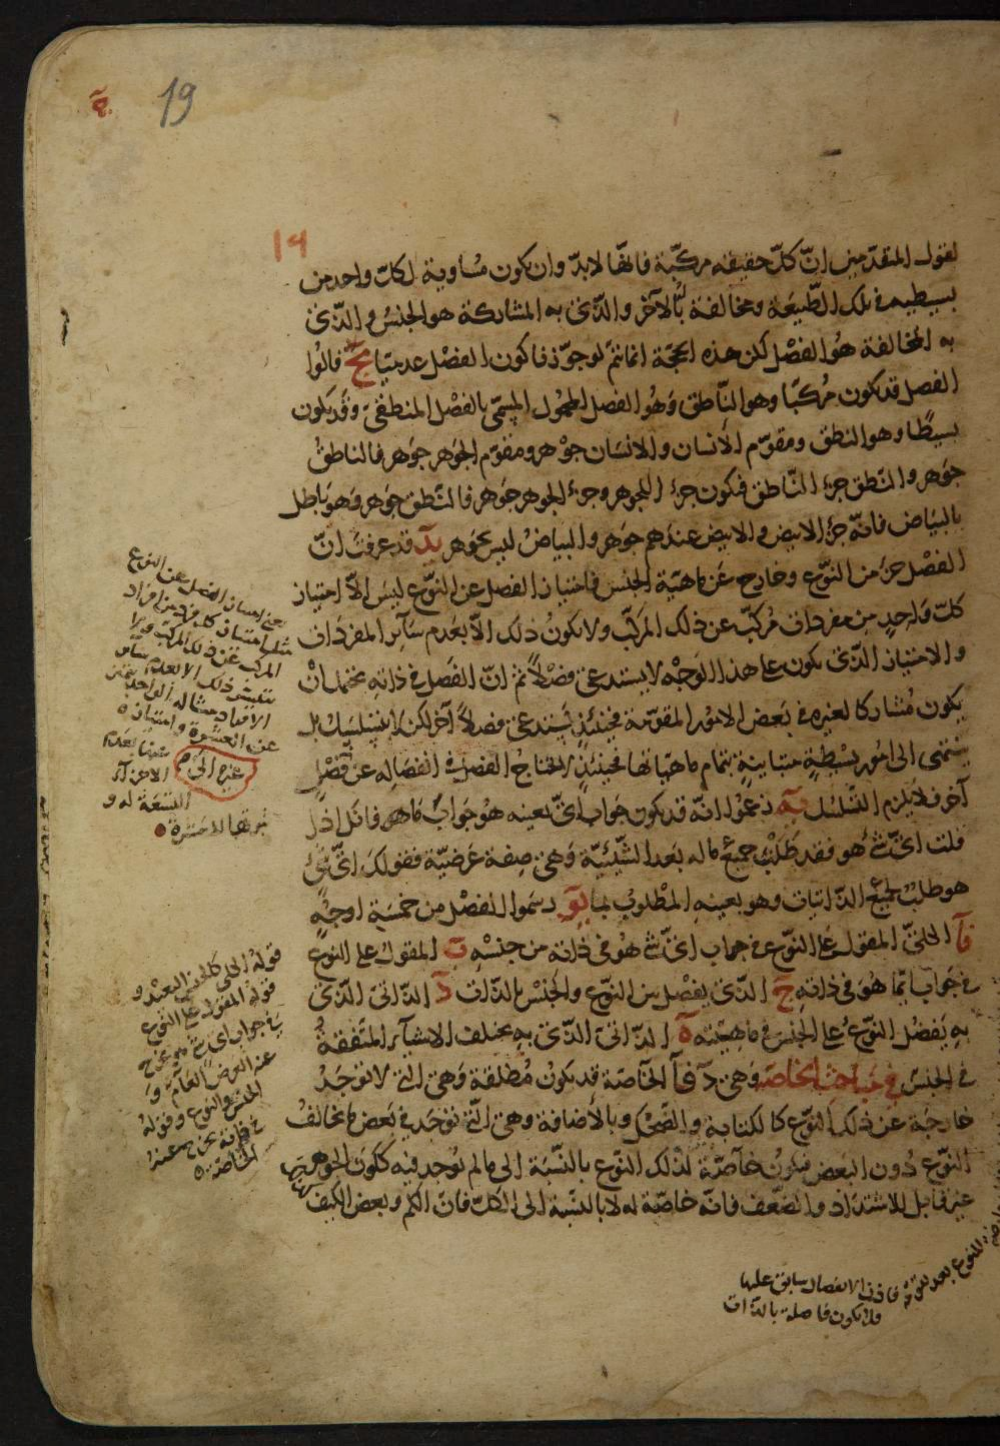 19
١٩
لقول المتقدمين انّ كلّ حقيقه مركّبة فانها لا بدّ وان يكون مساوية لكلّ واحد من
بسيطيه فى تلك الطّبيعة ومخالفة بالآخر والذّى به المشاركة هو الجنس والذّى
به المخالفة هُو الفصْل لكن هذه الحجّة انما تتم لو جوّزنا كون الفصْل عدميّا يَج قالوا
الفصل قد يكون مُركبًا وهو النّاطق وهُو الفصل المحمُول المسمّى بالفصْل المنطقىّ وقد يكون
بسيطًا وهو النطق ومقوّم الانسان والانسَان جوْهر ومقوّم الجَوهر جَوهر فالناطقُ
جَوهر والنّطق جزء النّاطق فيكون جزءُ الجوهر وجزءُ الجوهر جَوهر فالنّطق جَوهر وَهو بَاطل
بالبيَاض فانّه جزء الابيض والابيض عندهم جَوهر والبياضُ ليس بجَوهر يد قد عرفت انّ
الفصْل جزء من النّوع وخارج عَن ماهيّة الجنس فامتياز الفصل عن النّوع ليسَ الّا امتياز
كلّ وَاحدٍ من مفردات مُركبّ عن ذلك المركّب ولا يكونُ ذلك الّا بعَدم سَائر المفردَات
والامتياز الذّى يكون على هذا الوَجْه لا يستدعى فصْلاً ثم انّ الفصَل فى ذاته محتمل انْ
يكون مُشاركا لغيره فى بَعض الامُور المقوّمة فحينئذٍ يَستدعى فصلاً آخر لكن لا يتسلسل بل
ينتهى الى امُور بسْيطةٍ متباينةٍ بتمام ماهيّاتها فحينئذٍ لا يحتاج الفصل فى انفصَاله عن فصْلٍ
آخر فلا يَلزم التّسلسُل يه زعمُوا انّه قد يكون جَواب اىّ بعينه هُو جوابُ مَا هو فانك اذَا
قلت اىّ شئ هو فقد طَلبْتَ جميعَ ما له بَعد الشّيئيّة وَهىَ صِفة عَرضيّة فقولك اىّ شئ
هو طلبٌ لجميع الذّاتيات وهو بعينه المطْلوب بما يو رسَموا الفصْل من خمسَة اوجُه
آ الكلىّ المقول عَلى النّوع فى جواب اىّ شئ هُو فى ذاته من جنسْه ب المقول على النوع
فى جَواب ايّما هُو فى ذاته ج الذّى يفصْل بين النّوع والجنسْ بالذّات د الذّاتىّ الذّى
به يَفضُل النّوعُ على الجنسَ فى ماهيّته ه الذّاتىّ الذّى به يختلف الاشيآء المتّفقةُ
فى الجنسَ فى مبَاحث الخاصّة وَهى آ الخاصّة قد يكون مُطلقة وَهى التى لا توجَدُ
خارجَة عن ذلك النّوع كالكتابة والضّحك وبالاضافة وهى التّى توجَد فى بَعض ما يخالفُ
النّوع دُون البَعض فيكون خاصّة لذلك النّوع بالنّسْبَة الى ما لم يُوجد فيه ككَون الجَوهر
غير قابل للاشتدَاد والضّعف فانّه خاصّة له لا بالنسْبة الى الكلّ فانّ الكمّ وبعض الكيف
يعنى امتياز الفصل عن النوع
مثل امتياز كل فرد من افراد
المركب عن ذلك المركب ولا
عن العشرة وامتيازه
غيره الى م
التسعة له و
قوله الكلى كالجنس البعيد و
قوله المقول على النوع
فى جواب اى شئ هو يخرج
عنه العرض العام و
الجنس والنوع وقوله
فى ذاته يخرج عنه
الخاصة
للنوع بعد تقوّمه فاذن الانفصال سابق عليها
فلا يكون فاصلة بالذات